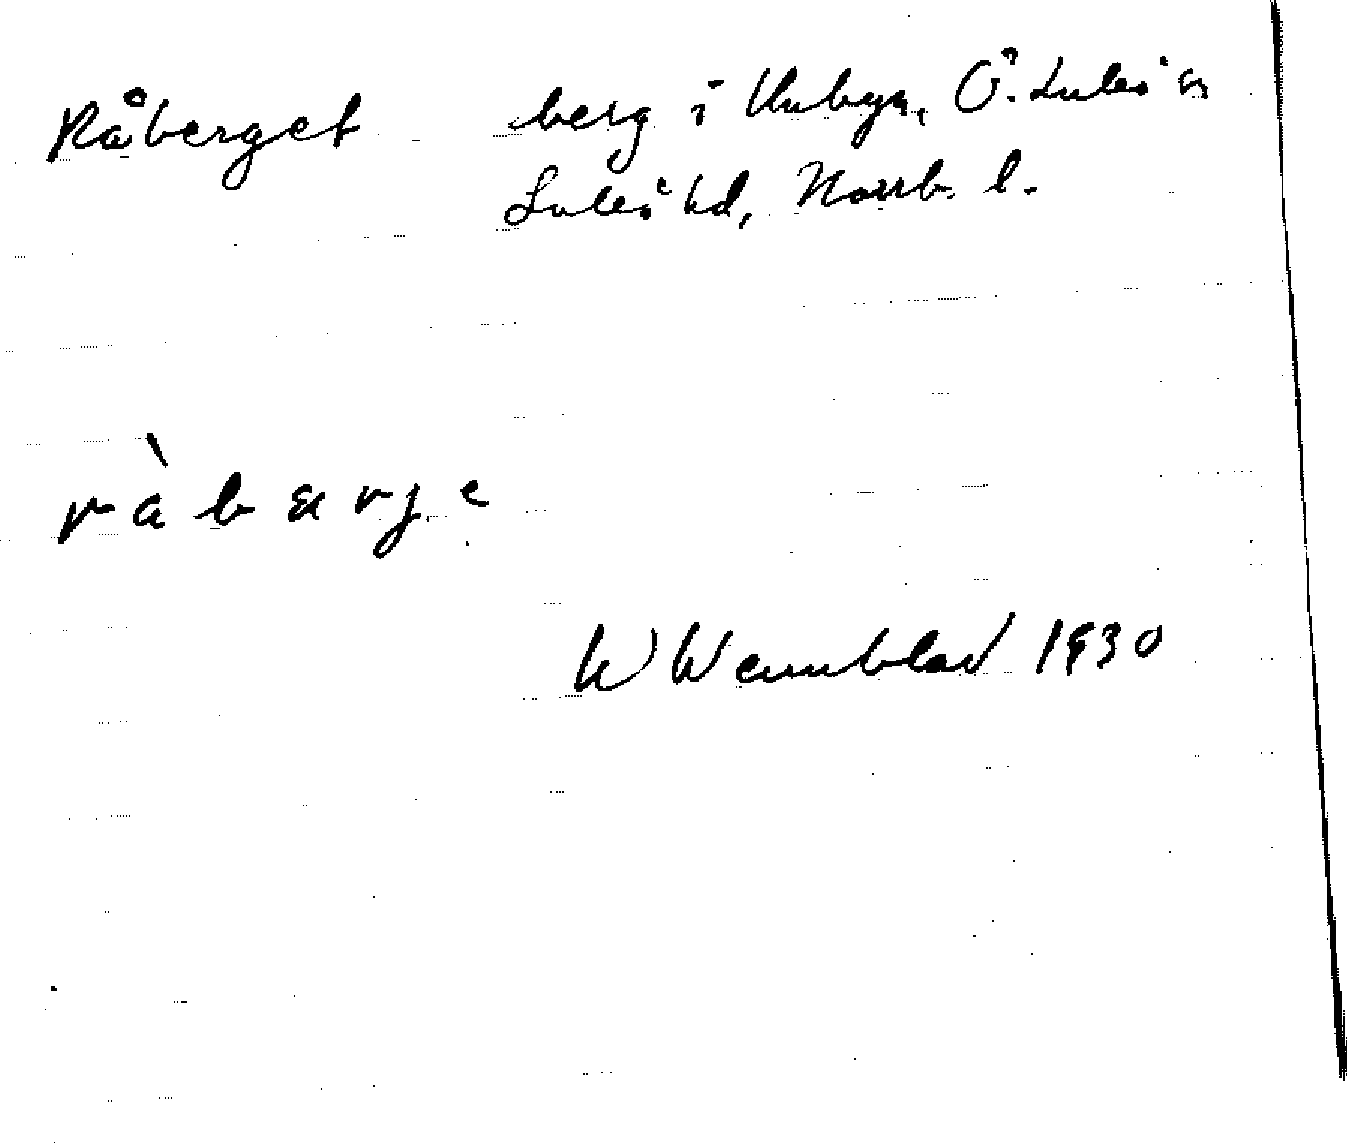 Råberget berg i Unbyn, Ö. Luleå sn
Luleå hd, Norrb. l.
ràbærje
W Wennblad 1930